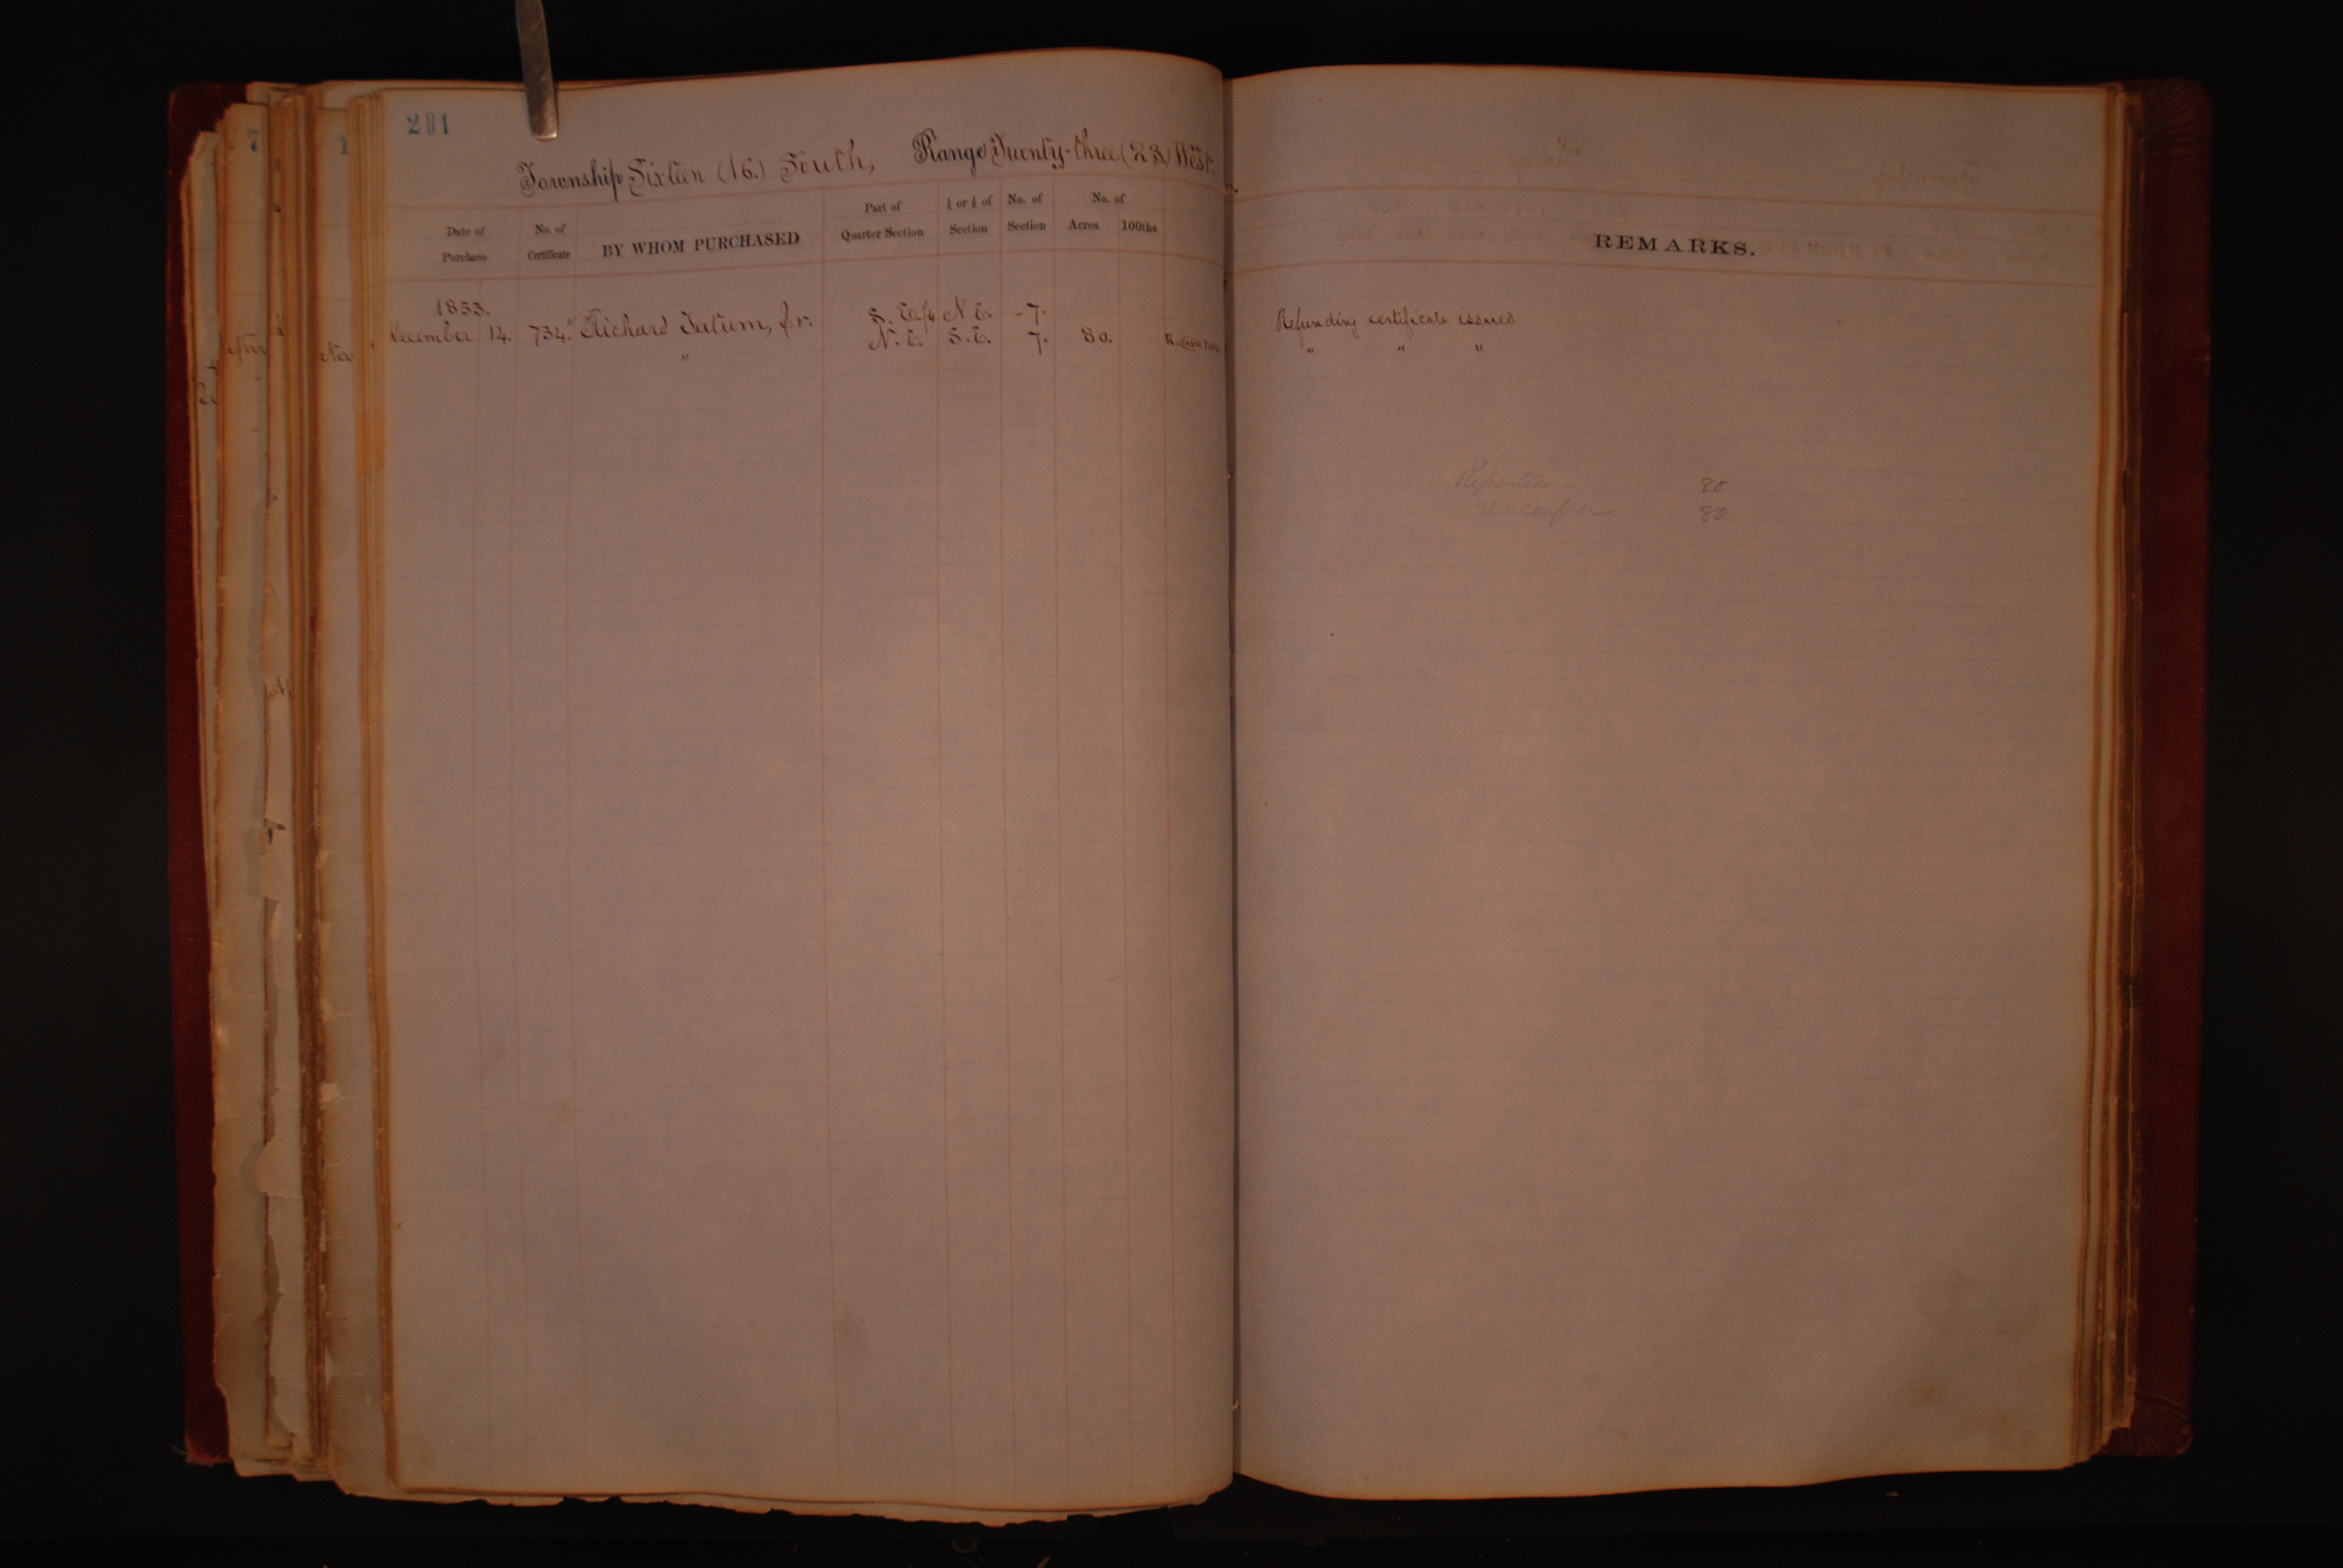 201
Township Sixteen (16.) South, Range Twenty-three (23.) West.
Date of Purchase No. of Certificate BY WHOM PURCHASED Part of Quarter Section ¼ or ½ of Section No. of Section No. of Acres 100ths
1853.
December 14. 734. Richard Tatum, Jr. S.E. N.E. 7.
" N.E. S.E. 7. 80.
REMARKS.
Refunding certificate issued
" " "
Reported 80
80
7
1
Nov
Nov